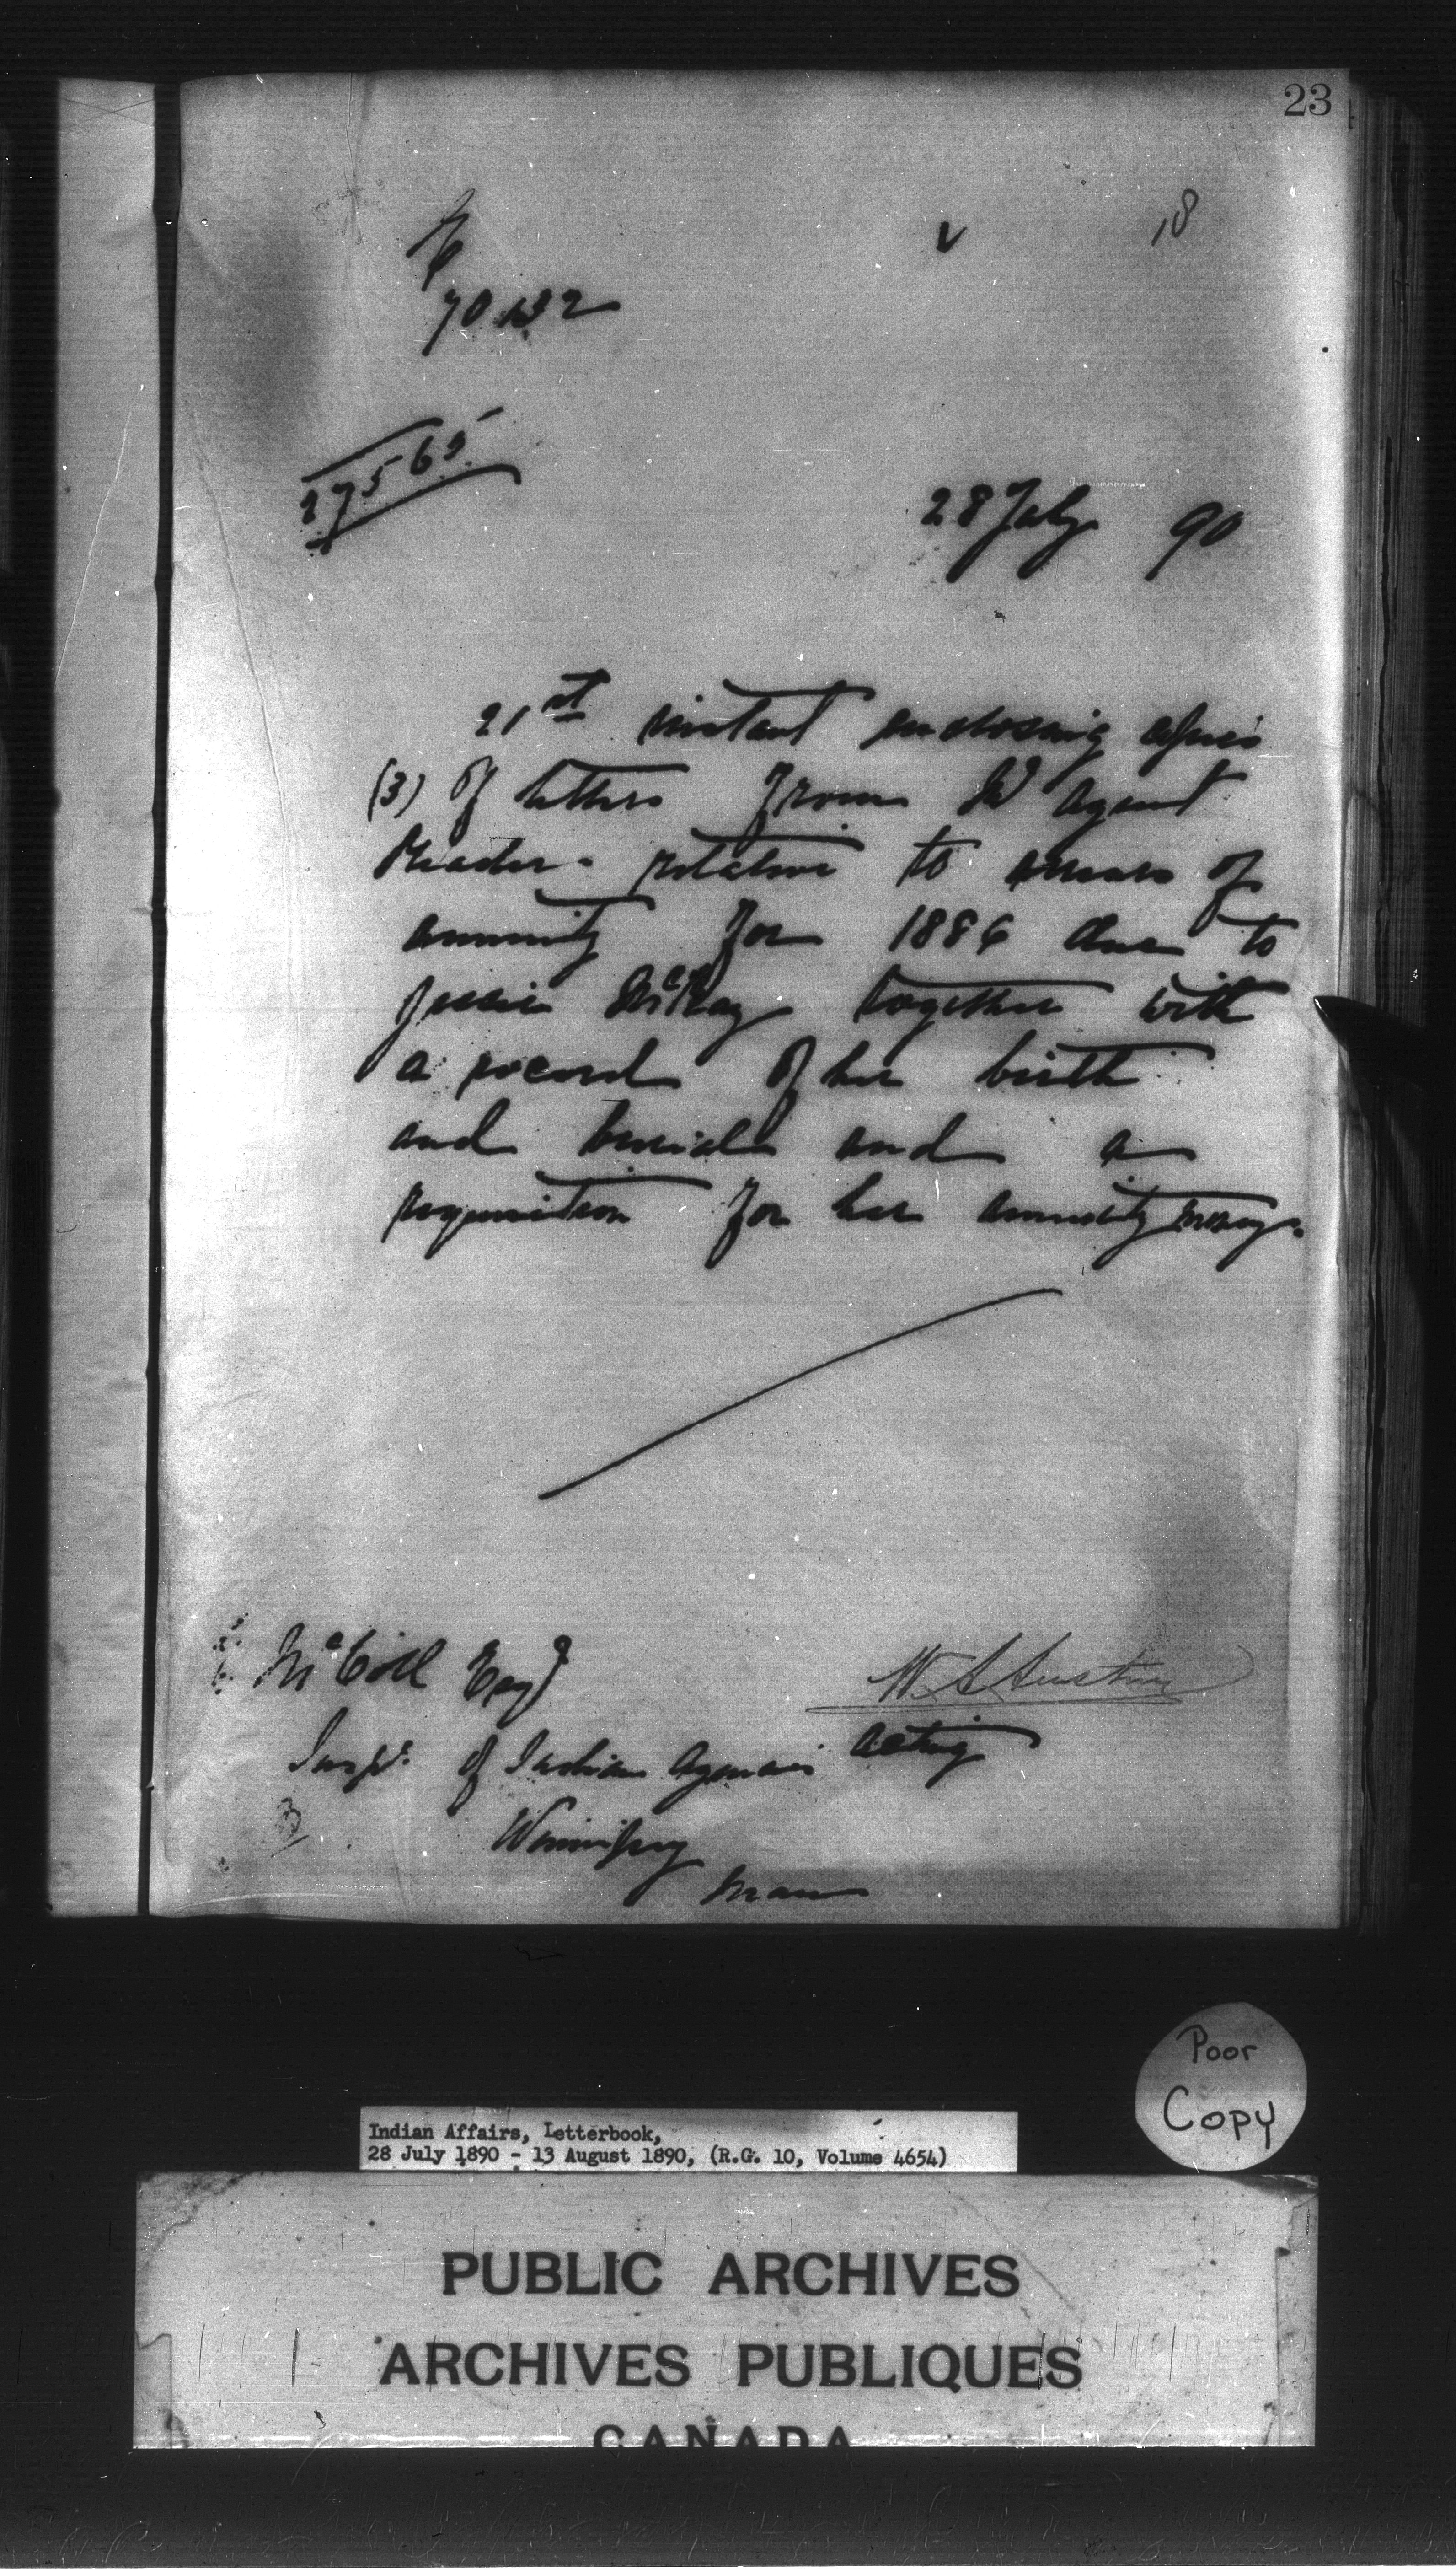 23
18
70132
17565
28 July 90
21st instant enclosing copies
(3) of letters from Agent
Reader relative to arrears of
annuity for 1886 due to
Jessie McKay together with
a record of her birth
and burial and a
requisition for her annuity money.
McColl Esqr
Inspr. of Indian Agencies
W A Austin
acting
Winnipeg
Man
Poor
Copy
Indian Affairs, Letterbook,
28 July 1890 - 13 August 1890, (R.G. 10, Volume 4654)
PUBLIC ARCHIVES
ARCHIVES PUBLIQUES
CANADA